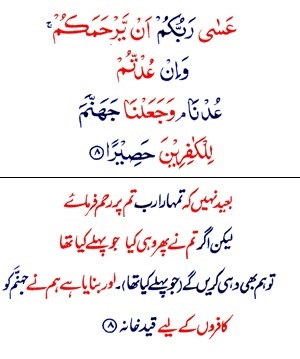 عَسٰی رَبُّکُمْ اَنْ یَّرْحَمَکُمْ ۚ
وَاِنْ عُدْتُّمْ
عُدْنَا ۘ وَجَعَلْنَا جَهَنَّمَ
لِلْکٰفِرِیْنَ حَصِیْرًا ﴿۸﴾
بعید نہیں کہ تمہارا رب تم پر رحم فرمائے
لیکن اگر تم نے پھر وہی کیا جو پہلے کیا تھا
تو ہم بھی وہی کریں گے (جو پہلے کیا تھا)۔ اور بنایا ہے ہم نے جہنّم کو
کافروں کے لیے قید خانہ ﴿۸﴾